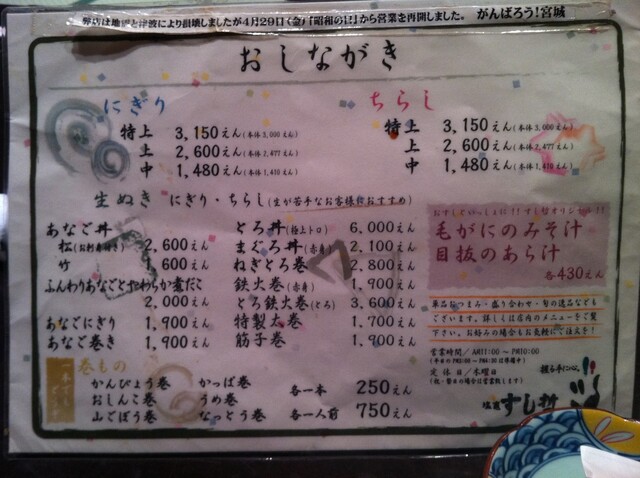 弊店は地震と津波により損壊しましたが4月29日(金)「昭和の日」から営業を再開しました。 がんばろう!宮城
おしながき
にぎり
特上 3,150えん(本体3,000えん)
上 2,600えん(本体2,477えん)
中 1,480えん(本体1,410えん)
ちらし
特上 3,150えん(本体3,000えん)
上 2,600えん(本体2,477えん)
中 1,480えん(本体1,410えん)
生ぬき にぎり・ちらし(生が苦手なお客様におすすめ)
あなご丼
松(お刺身付き) 2,600えん
竹 600えん
ふんわりあなごとやわらか煮だこ
2,000えん
あなごにぎり 1,900えん
あなご巻き 1,900えん
とろ丼(極上トロ) 6,000えん
まぐろ丼(赤身) 2,100えん
ねぎとろ巻 2,800えん
鉄火巻(赤身) 1,900えん
とろ鉄火巻(とろ) 3,600えん
特製太巻 1,700えん
筋子巻 1,900えん
おすしといっしょに!!すし哲オリジナル!!
毛がにのみそ汁
目抜のあら汁
各430えん
単品おつまみ・盛り合わせ・旬の逸品なども
ございます。詳しくは店内のメニューをご覧
下さい。お好みの場合もお気軽にご注文を!
営業時間/AM11:00~PM10:00
定休日/木曜日
(祝・祭日の場合は営業致します)
塩釜 すし哲
巻もの
かんぴょう巻 かっぱ巻
おしんこ巻 うめ巻
山ごぼう巻 なっとう巻
各一本 250えん
各一人前 750えん